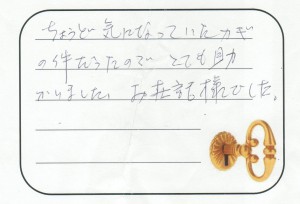 ちょうど気になっていたカギ
の件だったので とても助
かりました。お世話様でした。